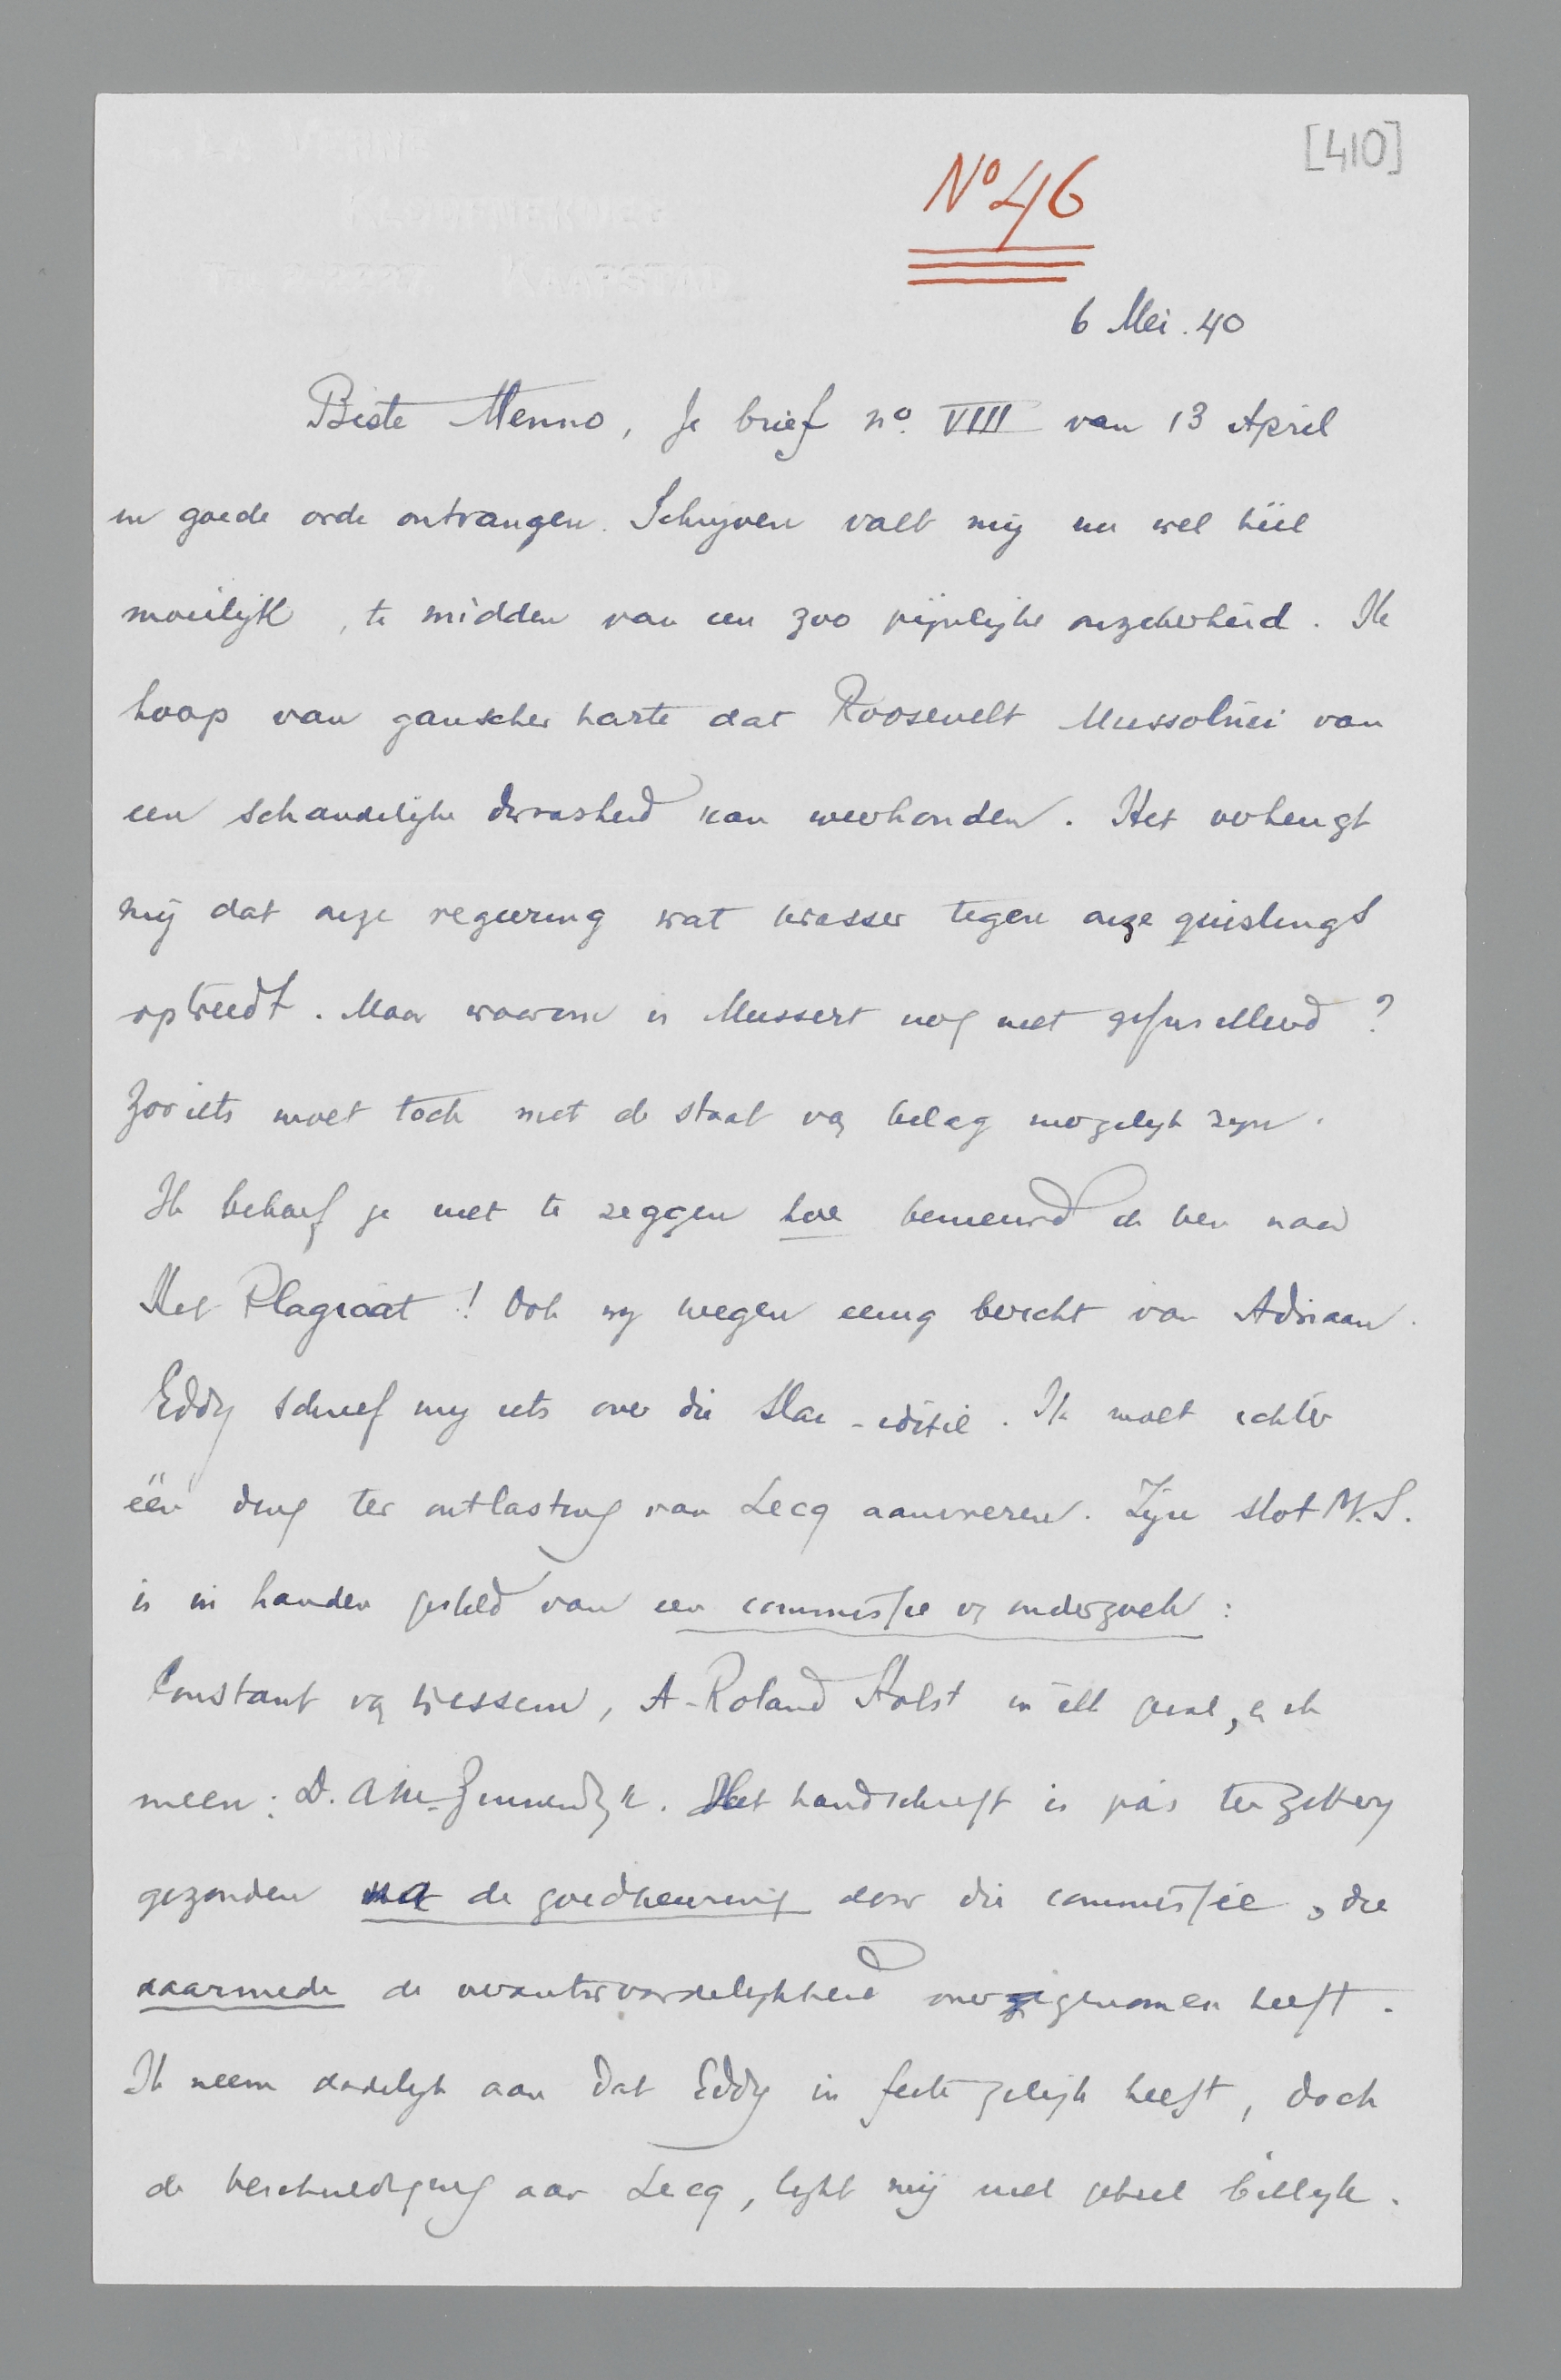 [410]
Nº 46
6 Mei. 40
Beste Menno, Je brief nº. VIII van 13 April
in goede orde ontvangen. Schrijven valt mij nu wel héél
moeilijk, te midden van een zoo pijnlijke onzekerheid. Ik
hoop van ganscher harte dat Roosevelt Mussolini van
een schandelijke dwaasheid kan weerhouden. Het verheugt
mij dat onze regeering wat krasser tegen onze quislings
optreedt. Maar waarom is Mussert nog niet gefusilleerd?
Zoo iets moet toch met de staat v. beleg mogelijk zijn.
Ik behoef je niet te zeggen hoe benieuwd ik ben naar
Het Plagiaat! Ook wij kregen eenig bericht van Adriaan.
Eddy schreef mij iets over die Slau-editie. Ik moet echter
één ding ter ontlasting van Lecq aanvoeren. Zijn slot M.S.
is in handen gesteld van een commissie v. onderzoek:
Constant v. Wessem, A. Roland Holst in elk geval, en ik
meen: D. A.M. Binnendijk. Het handschrift is pas ter zetterij
gezonden na de goedkeuring door die commissie, die
daarmede de verantwoordelijkheid overgenomen heeft.
Ik neem dadelijk aan dat Eddy in feite gelijk heeft, doch
de beschuldiging aan Lecq, lijkt mij niet geheel billijk.